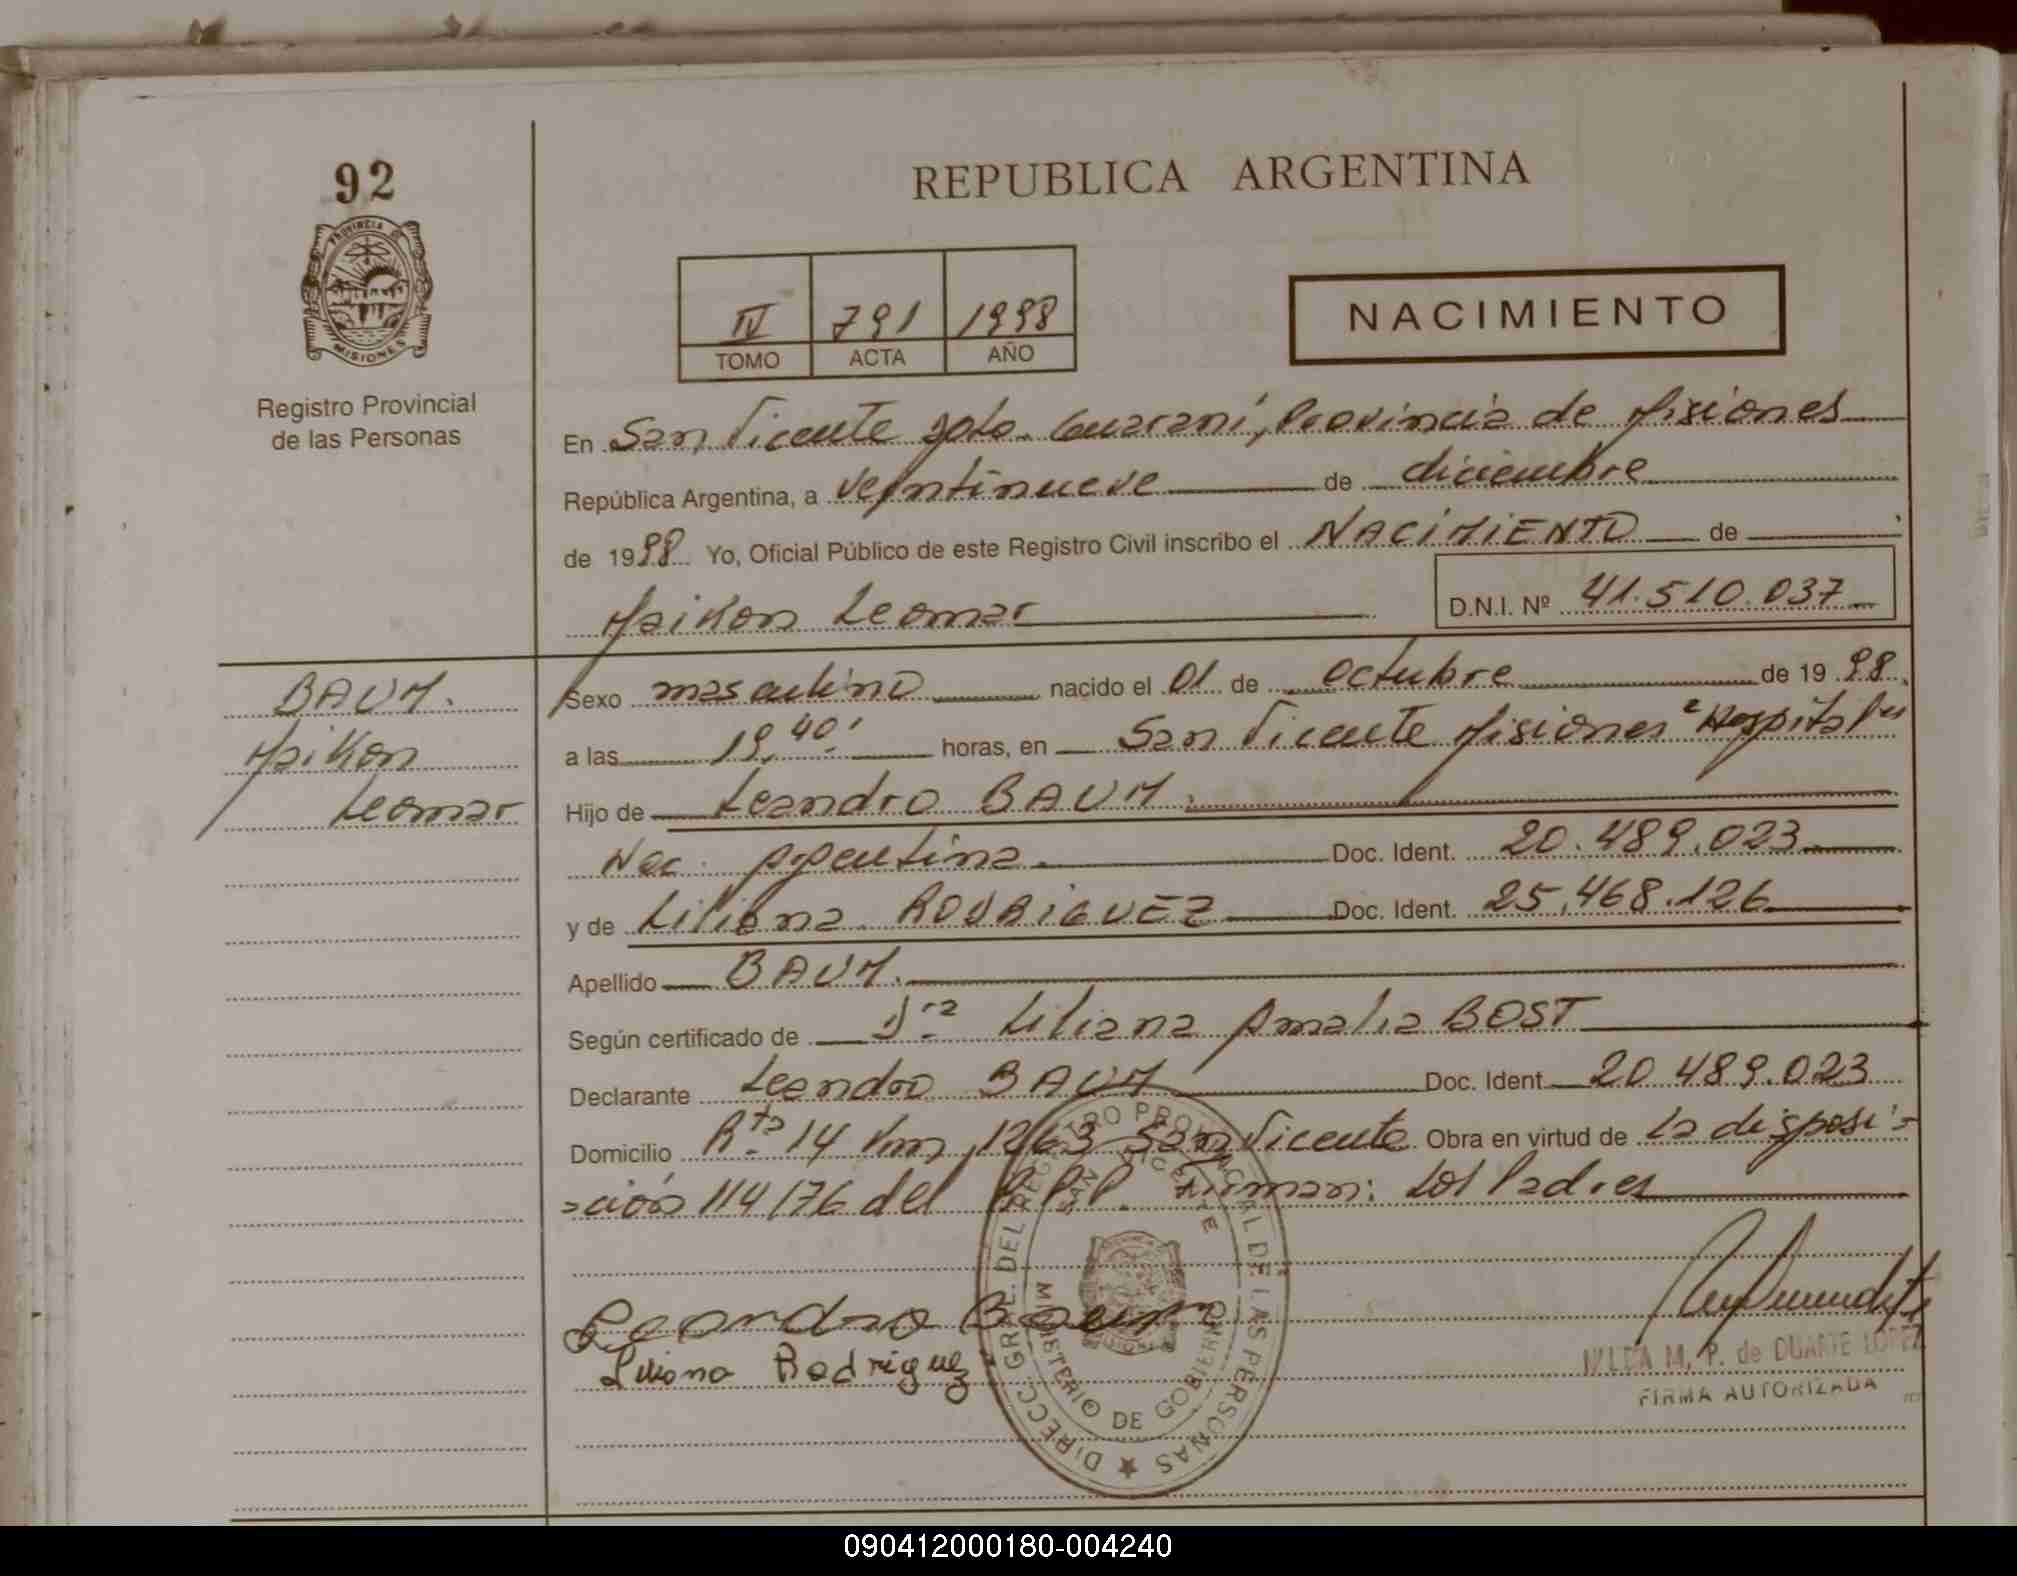 92
REPUBLICA ARGENTINA
PROVINCIA DE
MISIONES
Registro Provincial
de las Personas
IV 791 1998
TOMO ACTA AÑO
NACIMIENTO
En San Vicente Dpto. Guaraní, Provincia de Misiones
República Argentina, a veintinueve de diciembre
de 1998 Yo, Oficial Público de este Registro Civil inscribo el NACIMIENTO de
Maikon Leomar D.N.I. Nº 41.510.037
BAUM.
Maikon
Leomar
Sexo masculino nacido el 01 de octubre de 1998
a las 19,40' horas, en San Vicente Misiones Hospital
Hijo de Leandro BAUM.
Nac. Argentina. Doc. Ident. 20.489.023
y de Liliana RODRIGUEZ Doc. Ident. 25.468.126
Apellido BAUM.
Según certificado de Dra Liliana Amalia BOST
Declarante Leandro BAUM Doc. Ident. 20.489.023
Domicilio Rta 14 Km 1263 San Vicente Obra en virtud de la disposi-
-ción 114/76 del R.P.P. Firman: Los Padres
Leandro Baum
Liliana Rodriguez
DIRECC. GRAL. DEL REGISTRO PROVINCIAL DE LAS PERSONAS
SAN VICENTE
MINISTERIO DE GOBIERNO
M. P. de DUARTE LOPEZ
FIRMA AUTORIZADA
090412000180-004240